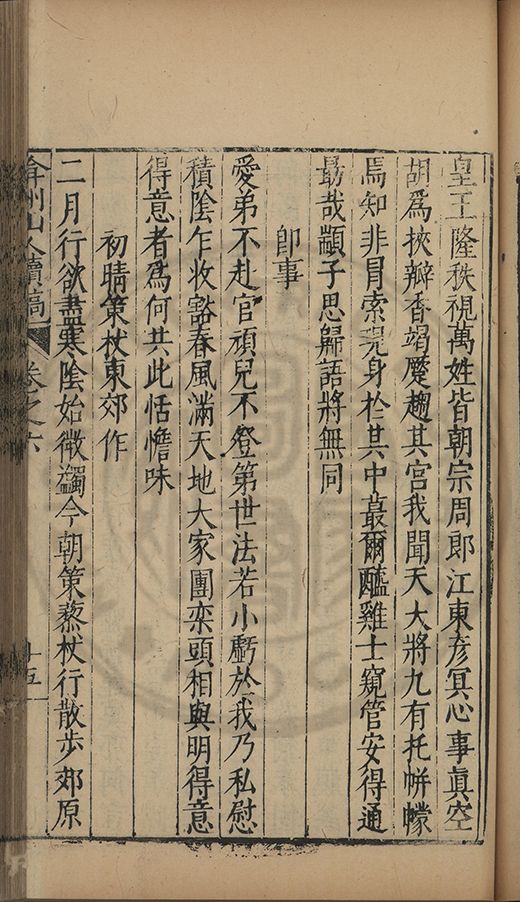 皇王隆秩視萬姓皆朝宗周郎江東彦冥心事眞空
胡爲挾瓣香竭蹷趨其宮我聞天大將九有托帡幪
焉知非冐索現身於其中蕞爾醯雞士窺管安得通
最哉顓子思歸語將無同
卽事
愛弟不赴官頑兒不登第世法若小虧於我乃私慰
積陰乍收豁春風滿天地大家團欒頭相與明得意
得意者爲何共此恬憺味
初晴策杖東郊作
二月行欲盡寒陰始微蠲今朝策藜杖行散步郊原
弇州山人續稿
卷之六
十五